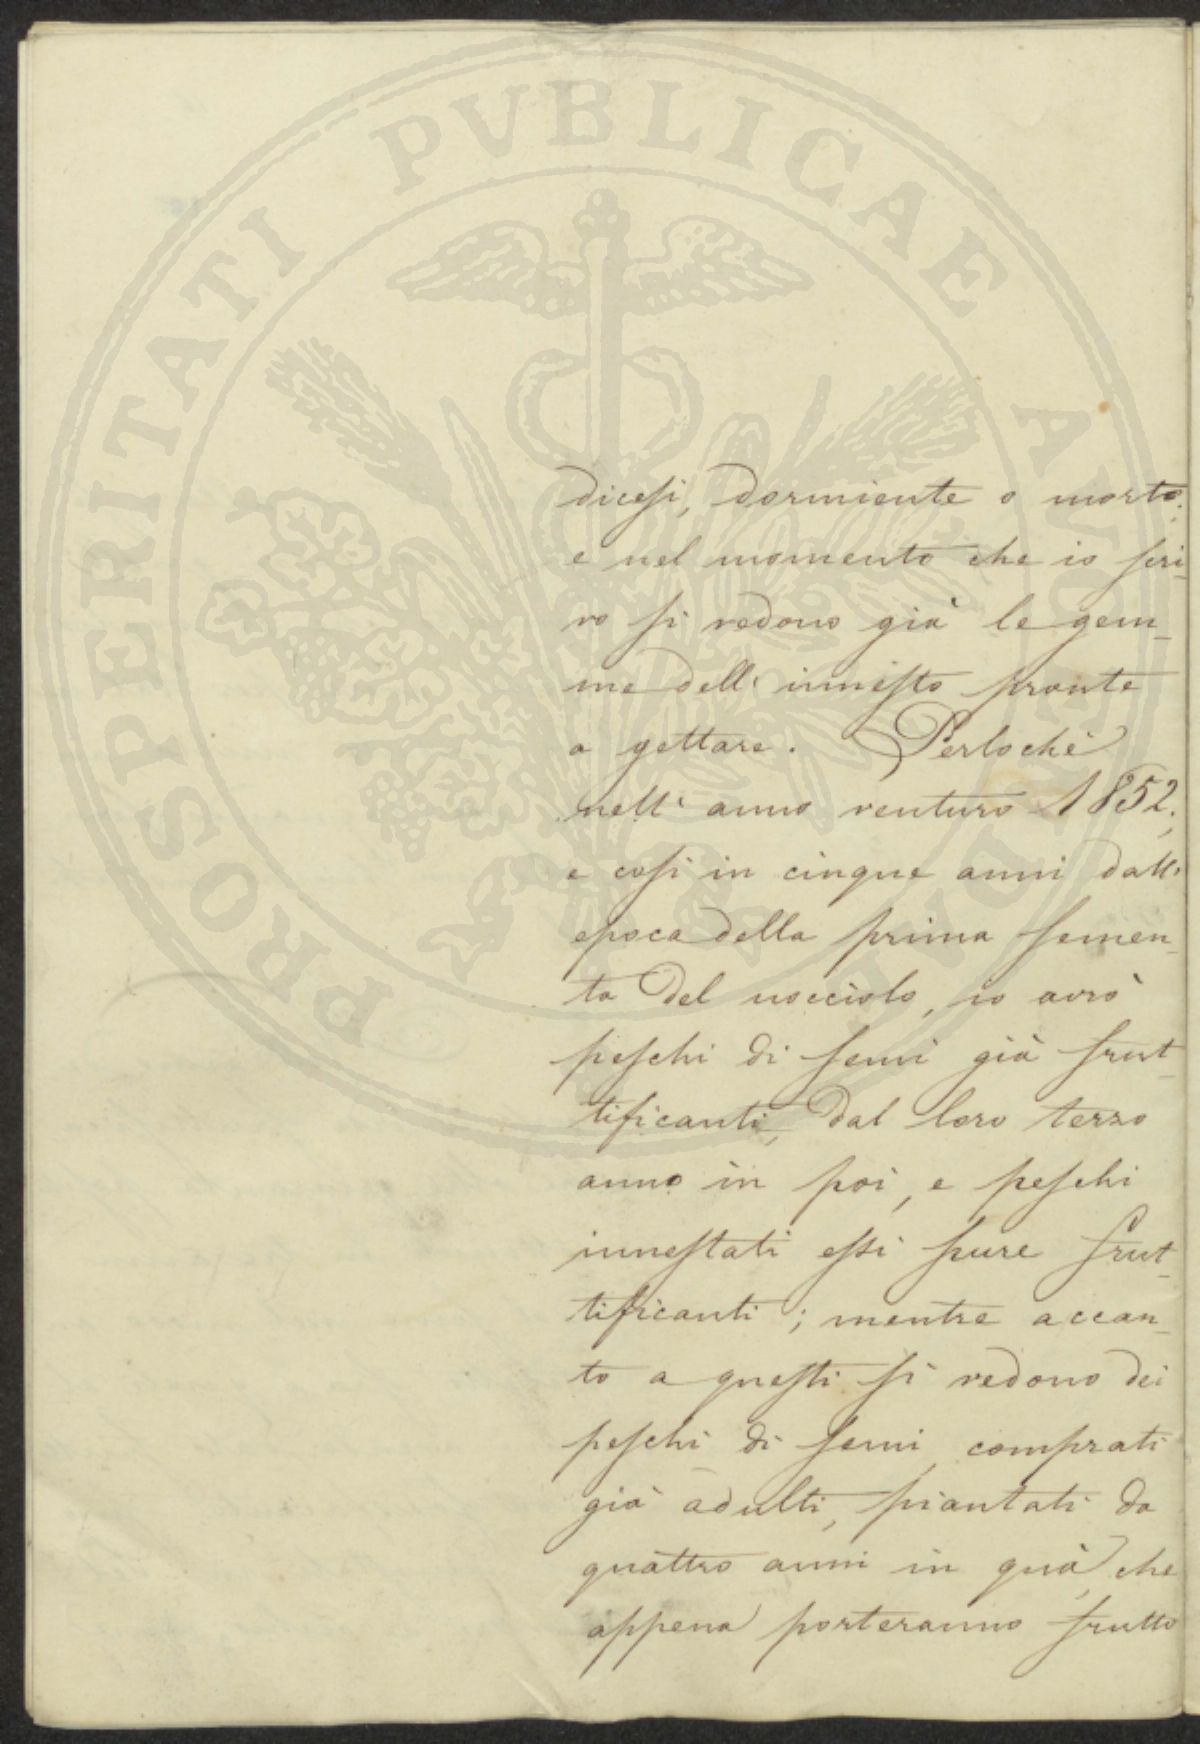 PROSPERITATI PVBLICAE AVGENDAE
dicesi, dormiente o morto;
e nel momento che io scri-
vo si vedono già le gem-
me dell' innesto pronte
a gettare. Perlochè
nell' anno venturo 1852;
e così in cinque anni dall'
epoca della prima semen-
ta del nocciolo, io avrò
peschi di semi già frut-
tificanti, dal loro terzo
anno in poi, e peschi
innestati essi pure frut-
tificanti; mentre accan-
to a questi si vedono dei
peschi di semi, comprati
già adulti, piantati da
quattro anni in quà, che
appena porteranno frutto